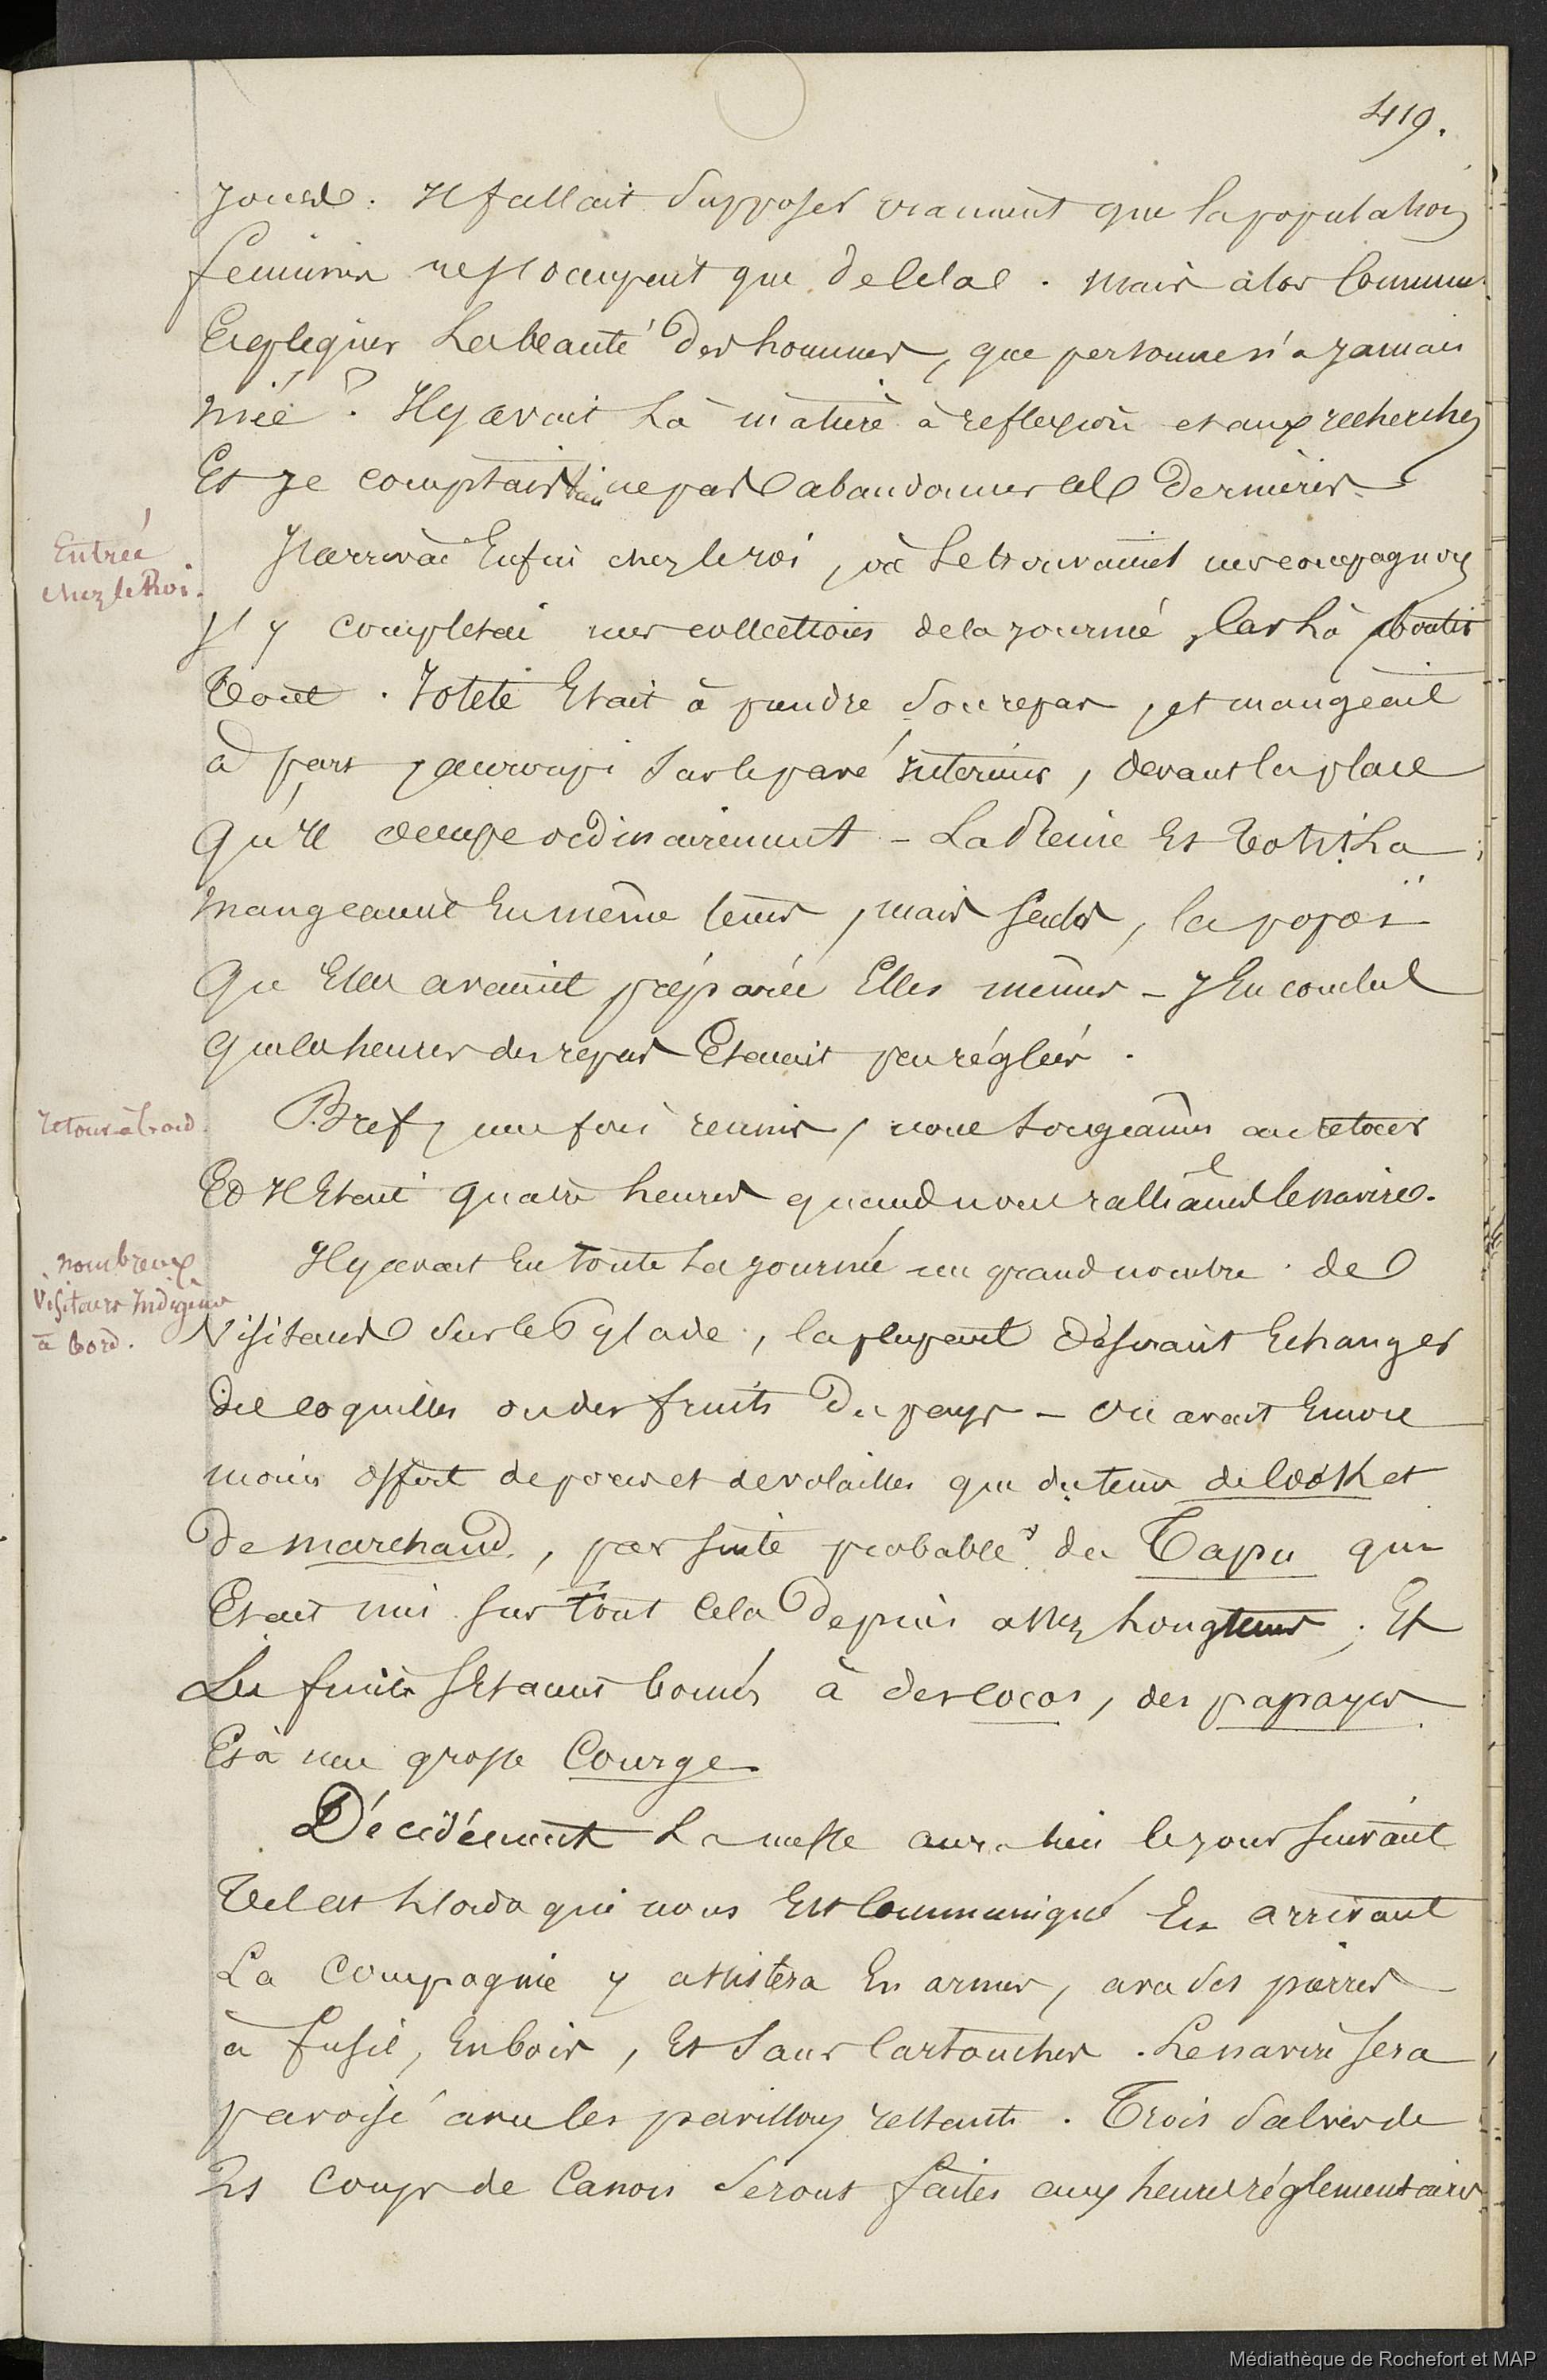 419.
jours. Il fallait supposer vraiment que la population
feminine ne s'occupait que de cela. mais alors comment
Expliquer la beauté des hommes, que personne n'a jamais
niée ? Il y avait là matière à reflexion et aux recherches
Et je comptais bien ne pas abandonner ces dernières.
Entrée
chez le Roi.
J'arrivai Enfin chez le roi, où se trouvaient mes compagnons
J'y completai mes collections de la journée, car là aboutit
tout. Iotété Etait à prendre son repas, et mangeait
à part, accroupi sur le pavé interieur, devant la place
qu'Il occupe ordinairement - La Reine Et
mangeaient En même tems, mais seules, la popoï
qu'Elles avaient préparée Elles mêmes - J'En conclus
que les heures des repas Etaient peu réglées.
retour à bord.
Bref, une fois reunis, nous songeâmes au retour
Et Il Etait quatre heures quand nous ralliâmes le navire.
nombreux
Visiteurs Indigènes
à bord.
Il y avait Eu toute la journée un grand nombre de
Visiteurs sur le Pylade, la plupart désirant Echanger
des coquilles ou des fruits du pays - On avait Encore
moins offert de porcs et de volailles que du tems de Cook et
De marchand, par suite probable du Tapu qui
Etait mis sur tout cela depuis assez longtems ; Et
Les fruits s'Etaient bornés à des cocos, des papayes
Et à une grosse Courge
Décidément La messe aura lieu le jour suivant
Tel est l'ordre qui nous Est Communiqué En arrivant
La compagnie y assistera En armes, avec des pierres
à fusil, En bois, Et sans Cartouches. Le navire sera
pavoisé avec les pavillons restants. Trois salves de
21 coups de Canon seront faites aux heures réglementaires
Médiathèque de Rochefort et MAP